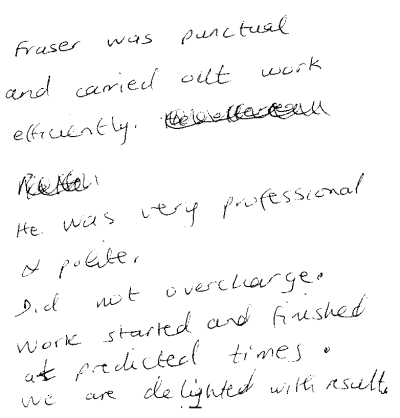 Fraser was punctual
and carried out work
efficiently.
He was very professional
& polite.
Did not overcharge.
Work started and finished
at predicted times.
We are delighted with result.